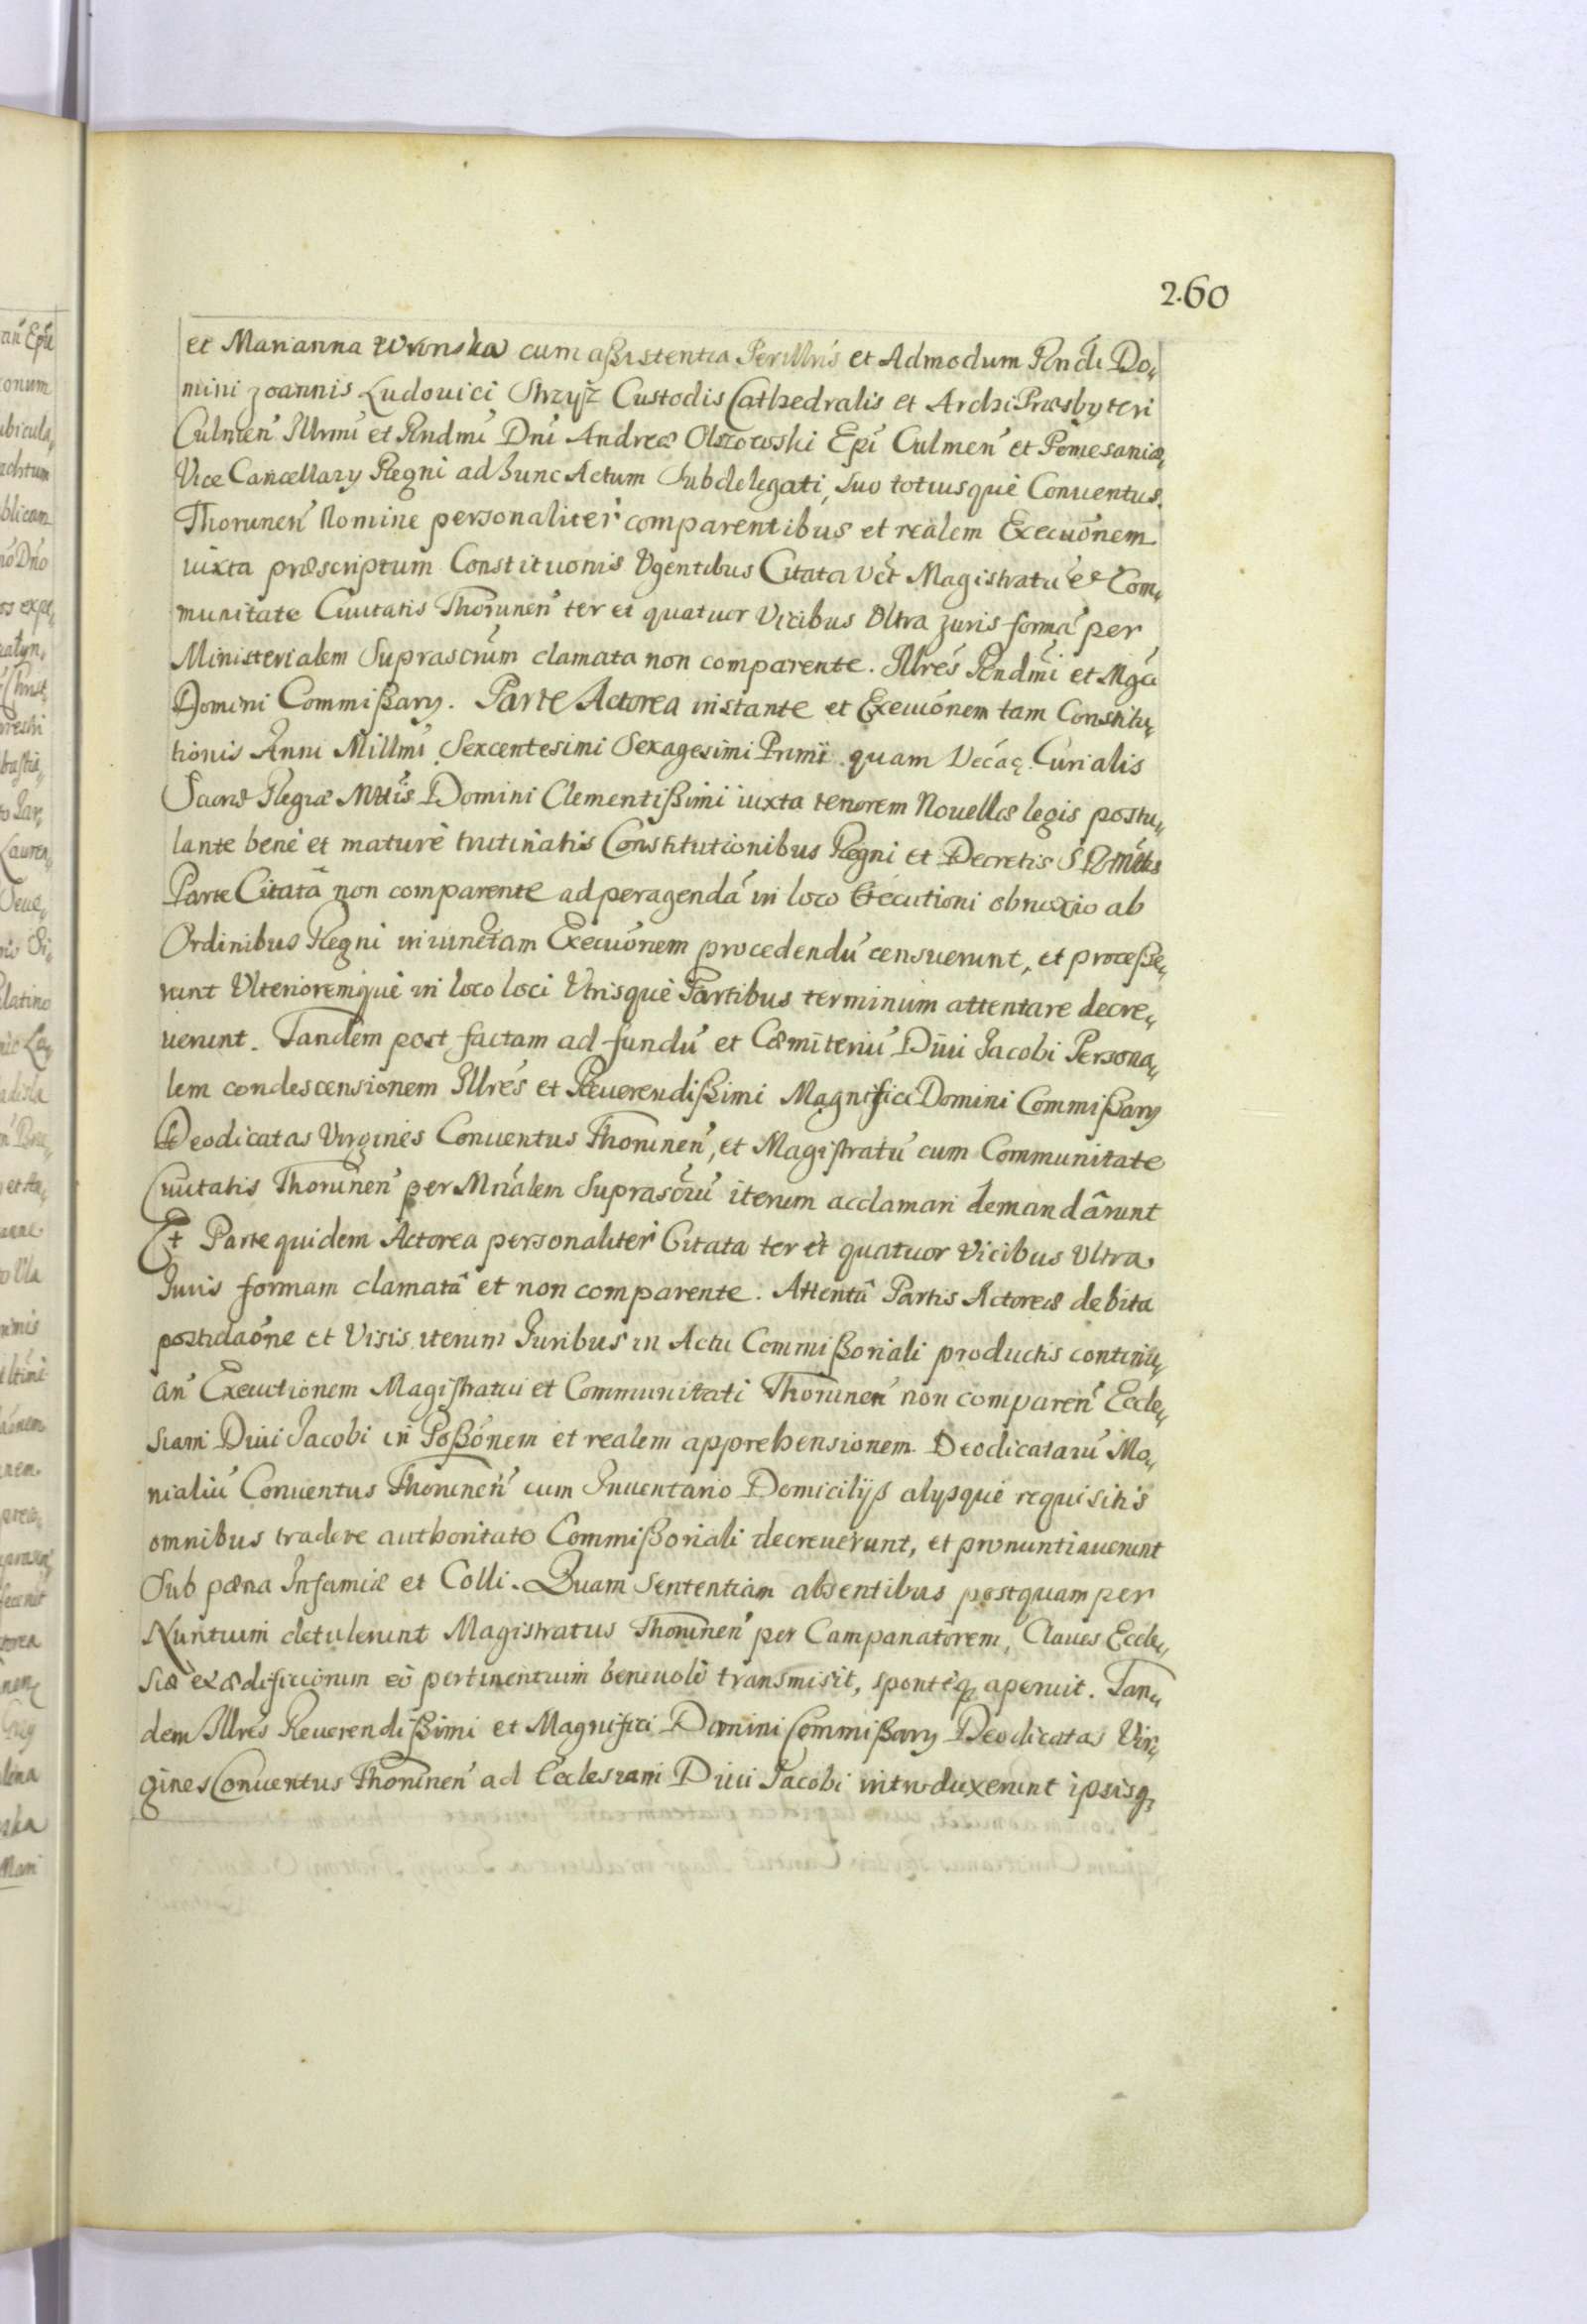 2.60
et Marianna Wronska cum aßistentia Perillris et Admodum Rndi Do„
mini Joannis Ludovici Strzyż Custodis Cathedralis et ArchiPræsbyteri
Culmen̄ Illrmi et Rndmi Dni Andreæ Olszowski Epi Culmen̄ et Pomesaniæ,
Vice Cancellary Regni ad hunc Actum Subdelegati, suo totiusquè Conuentus
Thorunen̄ Nomine personaliter comparentibus et realem Execuōnem
iuxta præscriptum Constituōnis Vgentibus Citata Vēt Magistratu et Com„
munitate Ciuitatis Thorunen̄ ter et quatuor Vicibus Vltra Juris formā per
Ministerialem Suprascrūm clamata non comparente. Illrēs Rndmi et Mgci
Domini Commißary. Parte Actorea instante et Execuōnem tam Constitu„
tionis Anni Millmi Sexcentesimi Sexagesimi Primi quam Curialis
Sacræ Regiæ Mttis Domini Clementißimi iuxta tenorem Nouellæ legis postu„
lante benè et maturè trutinatis Constitutionibus Regni et Decretis
Parte Citatâ non comparente ad peragendā in loco Executioni obnoxio ab
Ordinibus Regni iniunctam Execuōnem procedendū censuerunt, et proceße„
runt Vlterioremquè in loco loci Vtrisquè Partibus terminum attentare decre„
uerunt. Tandem post factam ad fundū et Cæmiteriū Diui Jacobi Persona„
lem condescensionem Illrēs et Reuerendißimi Magnifici Domini Commißary
Deodicatas Virgines Conuentus Thorunen̄, et Magistratū cum Communitate
Ciuitatis Thorunen̄ per Mrīalem Suprascrū iterum acclamari demandârunt
Et Parte quidem Actorea personaliter Citata ter et quatuor Vicibus Vltra
Juris formam clamatâ et non comparente. Attentâ Partis Actoreæ debita
postulaōne et Visis iterum Juribus in Actu Commißoriali productis continu„
an̄ Executionem Magistratui et Communitati Thorunen̄ non comparen̄ Eccle„
siam Diui Jacobi in Poßōnem et realem apprehensionem Deodicatarū Mo„
nialiū Conuentus Thorunen̄ cum Inuentario Domicilijß alysquè requisitis
omnibus tradere authoritate Commißoriali decreuerunt, et pronuntiauerunt
Sub pæna Infamiæ et Colli. Quam Sententiam absentibus postquam per
Nuntium detulerunt Magistratus Thorunen̄ per Campanatorem, Claues Eccle„
siæ et ædificiorum eò pertinentium beneuolè transmisit, sponteq3 aperuit. Tan„
dem Illrēs Reuerendißimi et Magnifici Domini Commißary Deodicatas Vir„
gines Conuentus Thorunen̄ ad Ecclesiam Diui Jacobi introduxerunt ipsisq3